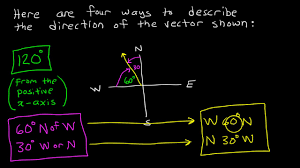 Here are four ways to describe
the direction of the vector shown:
120°
(from the
positive
x-axis)
N
30
60°
W
E
S
60° N of W
30° W of N
W 60° N
N 30° W